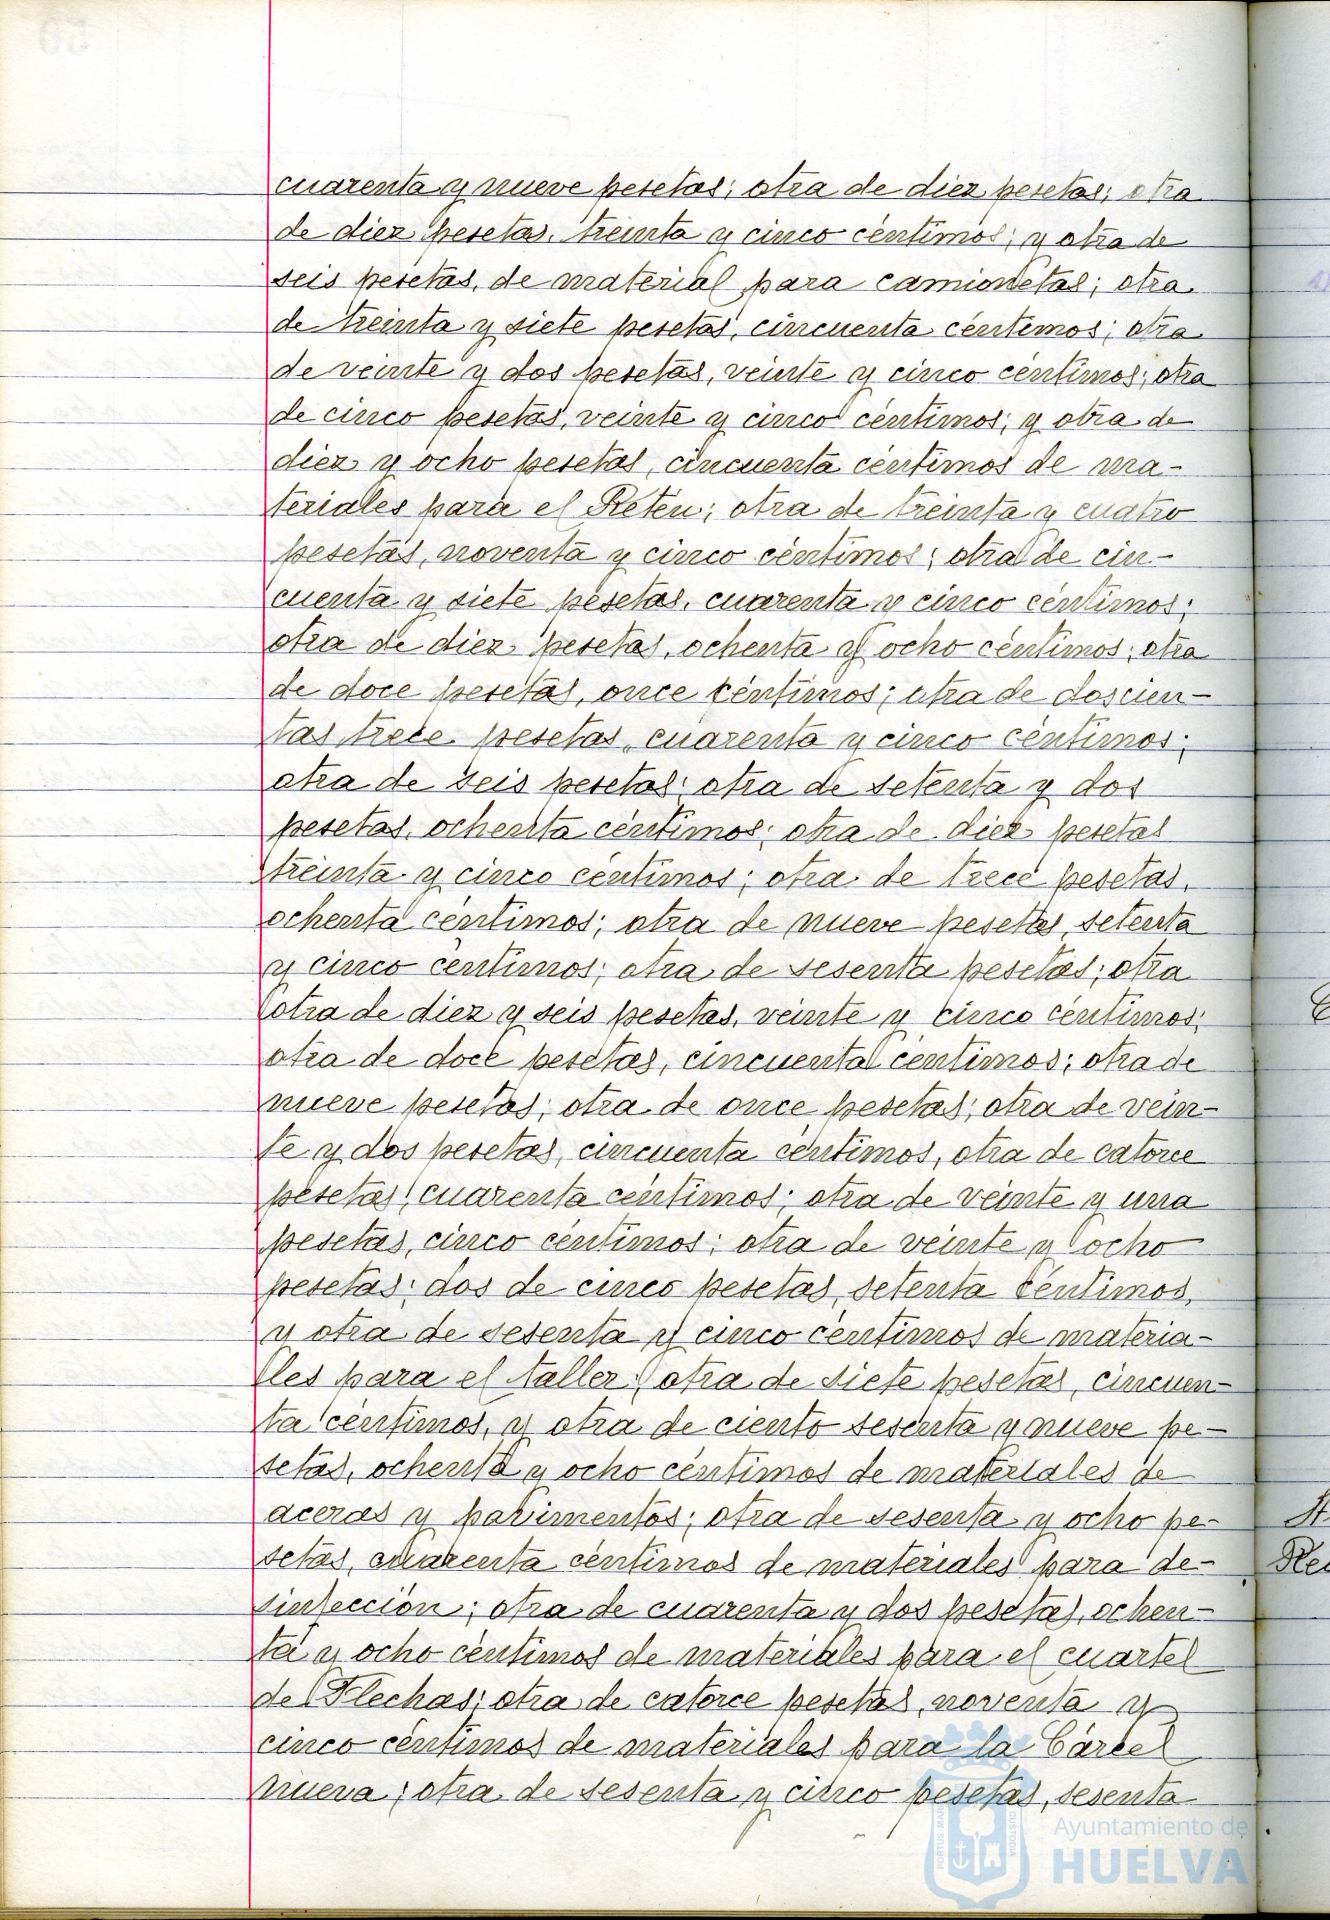 cuarenta y nueve pesetas; otra de diez pesetas; otra
de diez pesetas, treinta y cinco céntimos; y otra de
seis pesetas, de material para camionetas; otra
de treinta y siete pesetas, cincuenta céntimos; otra
de veinte y dos pesetas, veinte y cinco céntimos; otra
de cinco pesetas, veinte y cinco céntimos; y otra de
diez y ocho pesetas, cincuenta céntimos de ma-
teriales para el Retén; otra de treinta y cuatro
pesetas, noventa y cinco céntimos; otra de cin-
cuenta y siete pesetas, cuarenta y cinco céntimos;
otra de diez pesetas, ochenta y ocho céntimos; otra
de doce pesetas, once céntimos; otra de doscien-
tas trece pesetas, cuarenta y cinco céntimos;
otra de seis pesetas; otra de setenta y dos
pesetas, ochenta céntimos; otra de diez pesetas
treinta y cinco céntimos; otra de trece pesetas,
ochenta céntimos; otra de nueve pesetas, setenta
y cinco céntimos; otra de sesenta pesetas; otra
otra de diez y seis pesetas, veinte y cinco céntimos;
otra de doce pesetas, cincuenta céntimos; otra de
nueve pesetas; otra de once pesetas; otra de vein-
te y dos pesetas, cincuenta céntimos, otra de catorce
pesetas, cuarenta céntimos; otra de veinte y una
pesetas, cinco céntimos; otra de veinte y ocho
pesetas; dos de cinco pesetas, setenta céntimos,
y otra de sesenta y cinco céntimos de materia-
les para el taller; otra de siete pesetas, cincuen-
ta céntimos, y otra de ciento sesenta y nueve pe-
setas, ochenta y ocho céntimos de materiales de
aceras y pavimentos; otra de sesenta y ocho pe-
setas, cuarenta céntimos de materiales para de-
sinfección; otra de cuarenta y dos pesetas, ochen-
ta y ocho céntimos de materiales para el cuartel
de Flechas; otra de catorce pesetas, noventa y
cinco céntimos de materiales para la Cárcel
nueva; otra de sesenta y cinco pesetas, sesenta
PORTUS MARIS CUSTODIA
Ayuntamiento de
HUELVA